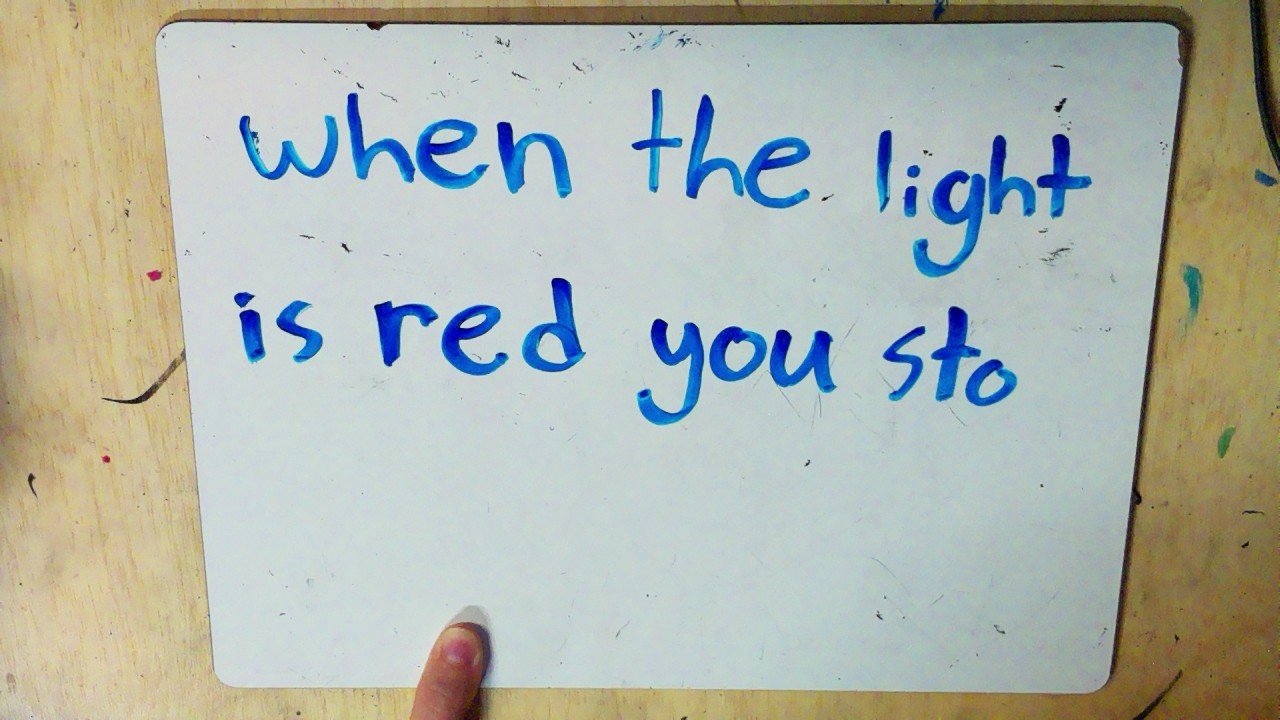 when the light
is red you sto